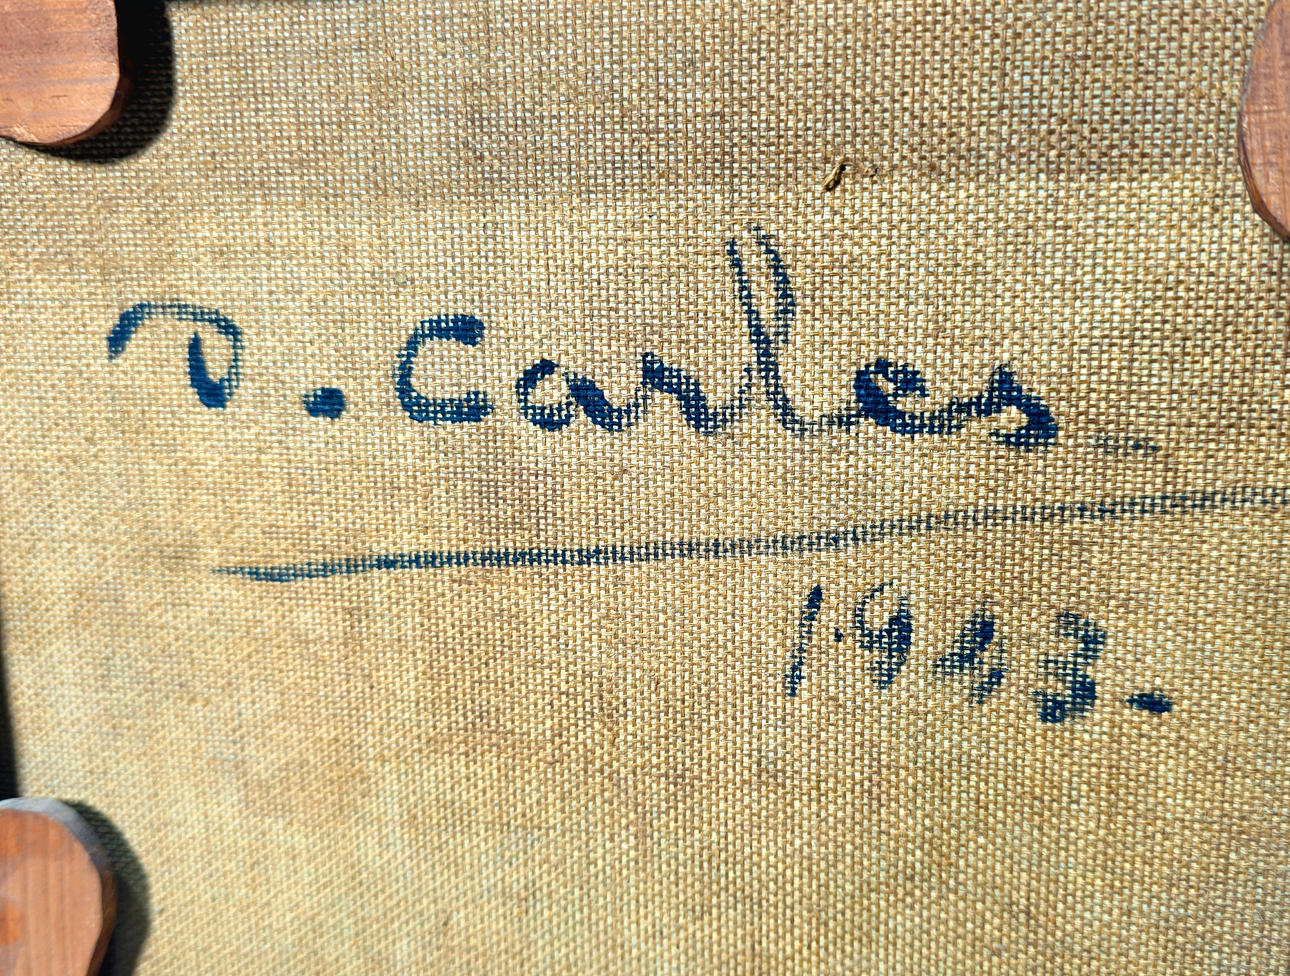 D. Carles
1943.